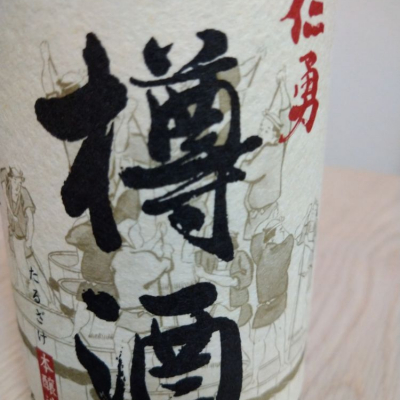 仁勇
樽酒
たるざけ
本醸